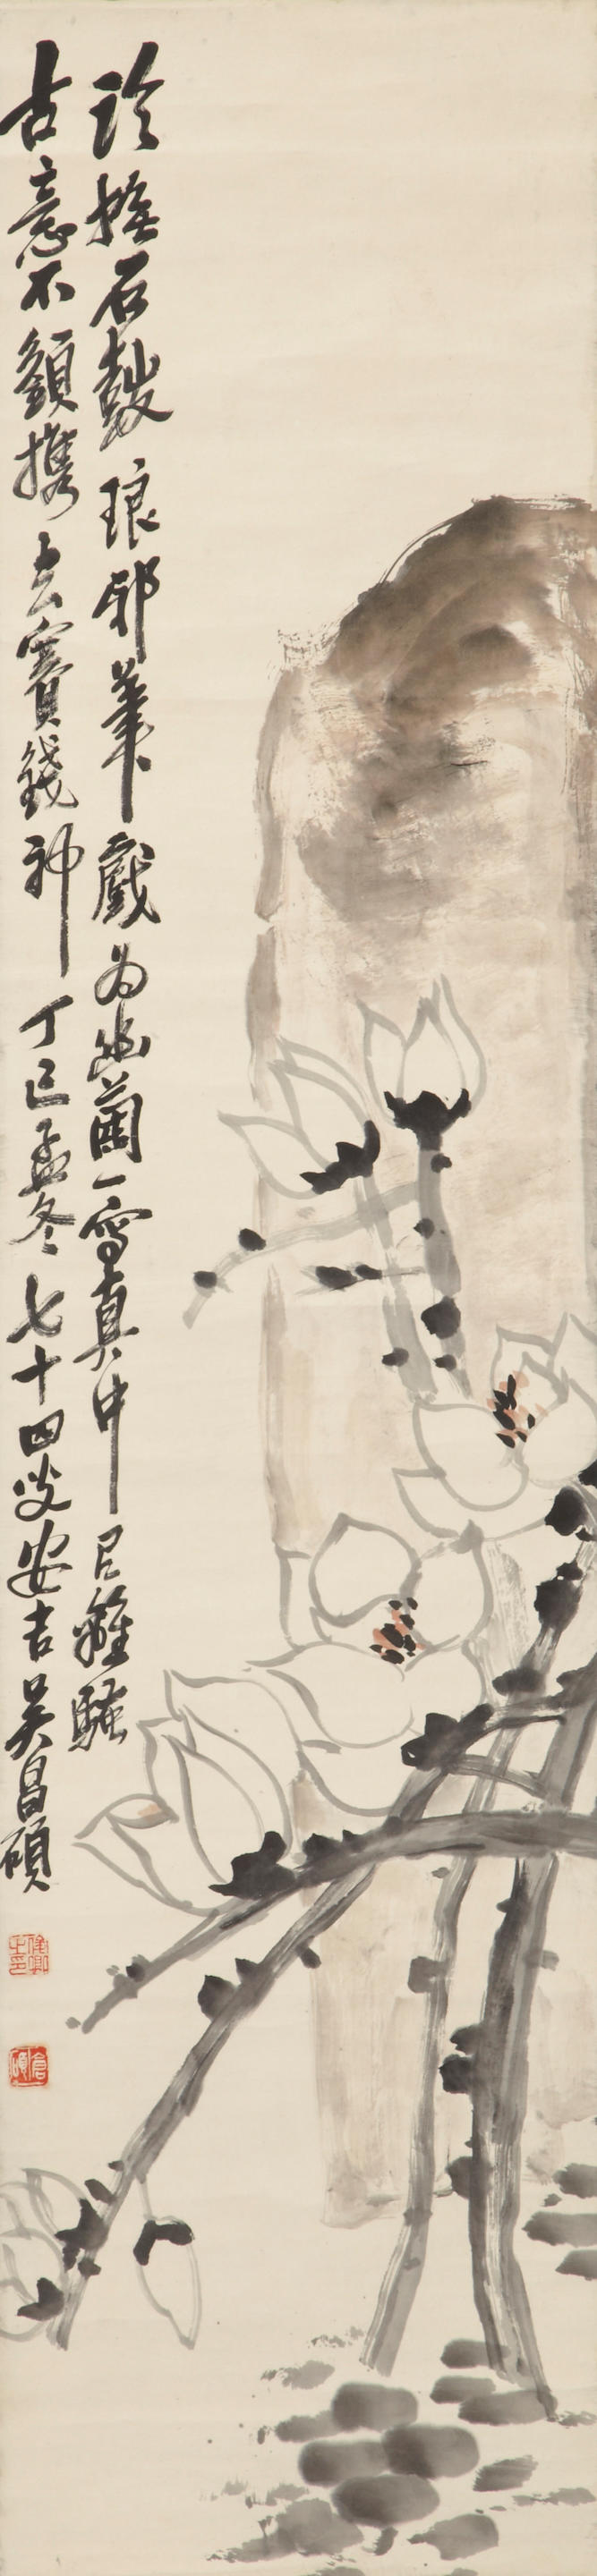 臨橅石鼓琅邪筆戲为幽蘭一寫真中有離騷
古意不須携去賽錢神丁巳孟冬七十四叟安吉吴昌碩
俊卿之印
倉碩